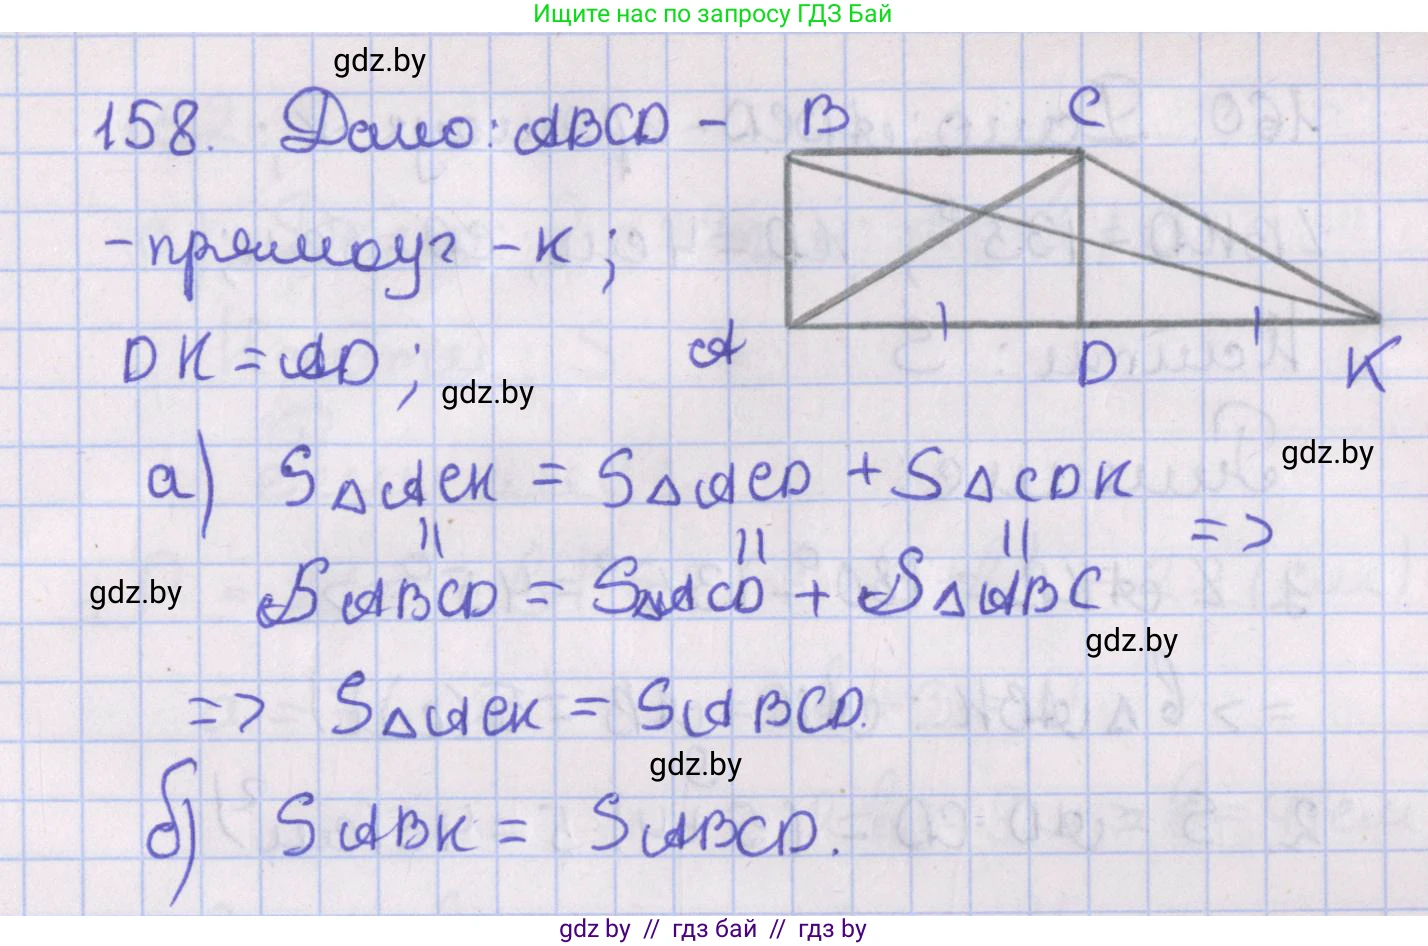 Ищите нас по запросу ГДЗ Бай
gdz.by
158. Дано: ABCD -
B
C
- прямоуг - к ;
DK = AD ;
A
D
K
gdz.by
gdz.by
а) S△ACK = S△ACD + S△CDK
|| || || =>
gdz.by
SABCD = S△ACD + S△ABC
gdz.by
=> S△ACK = SABCD.
gdz.by
б) SABK = SABCD.
gdz.by // гдз бай // гдз by